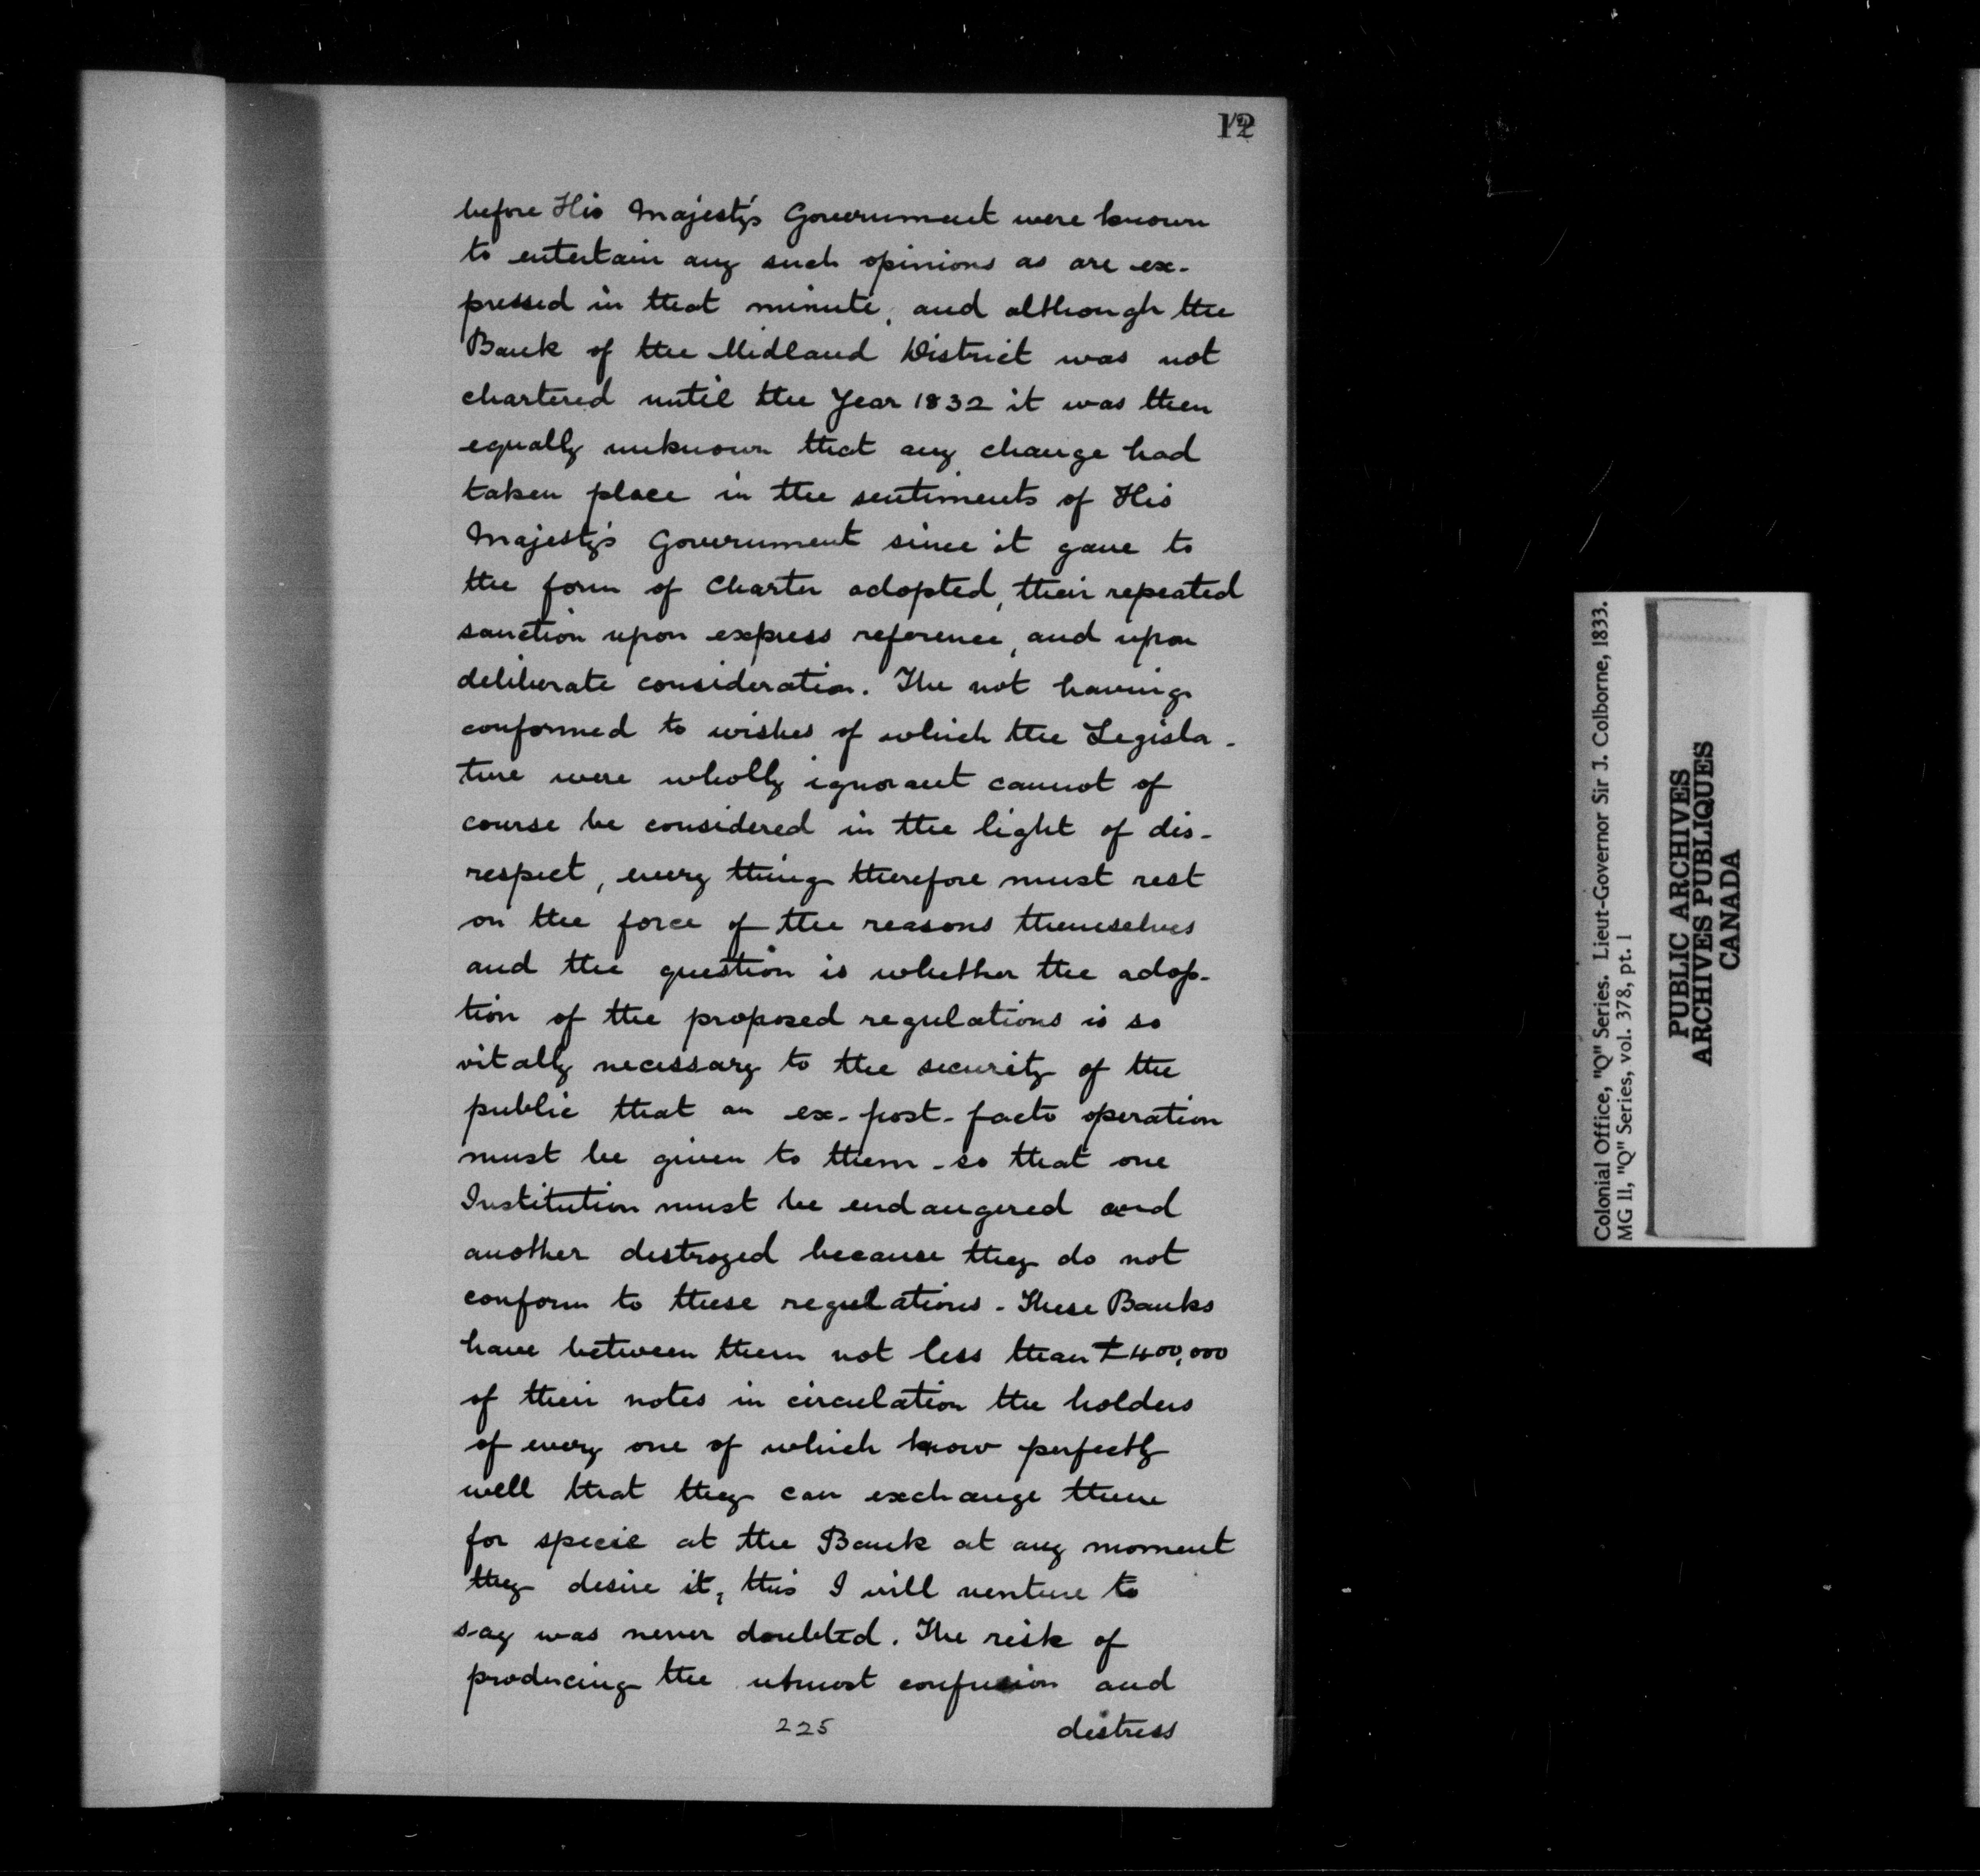 12
before His Majesty's Government were known
to entertain any such opinions as are ex-
pressed in that minute, and although the
Bank of the Midland District was not
chartered until the Year 1832 it was then
equally unknown that any change had
taken place in the sentiments of His
Majesty's Government since it gave to
the form of Charter adopted, their repeated
sanction upon express reference, and upon
deliberate consideration. The not having
conformed to wishes of which the Legisla-
ture were wholly ignorant cannot of
course be considered in the light of dis-
respect, every thing therefore must rest
on the force of the reasons themselves
and the question is whether the adop-
tion of the proposed regulations is so
vitally necessary to the security of the
public that an ex-post-facto operation
must be given to them - so that one
Institution must be endangered and
another destroyed because they do not
conform to these regulations. These Banks
have between them not less than £400,000
of their notes in circulation the holders
of every one of which know perfectly
well that they can exchange them
for specie at the Bank at any moment
they desire it, this I will venture to
say was never doubted. The risk of
producing the utmost confusion and
225 distress
Colonial Office, "Q" Series. Lieut-Governor Sir J. Colborne, 1833.
MG 11, "Q" Series, vol. 378, pt. 1
PUBLIC ARCHIVES
ARCHIVES PUBLIQUES
CANADA